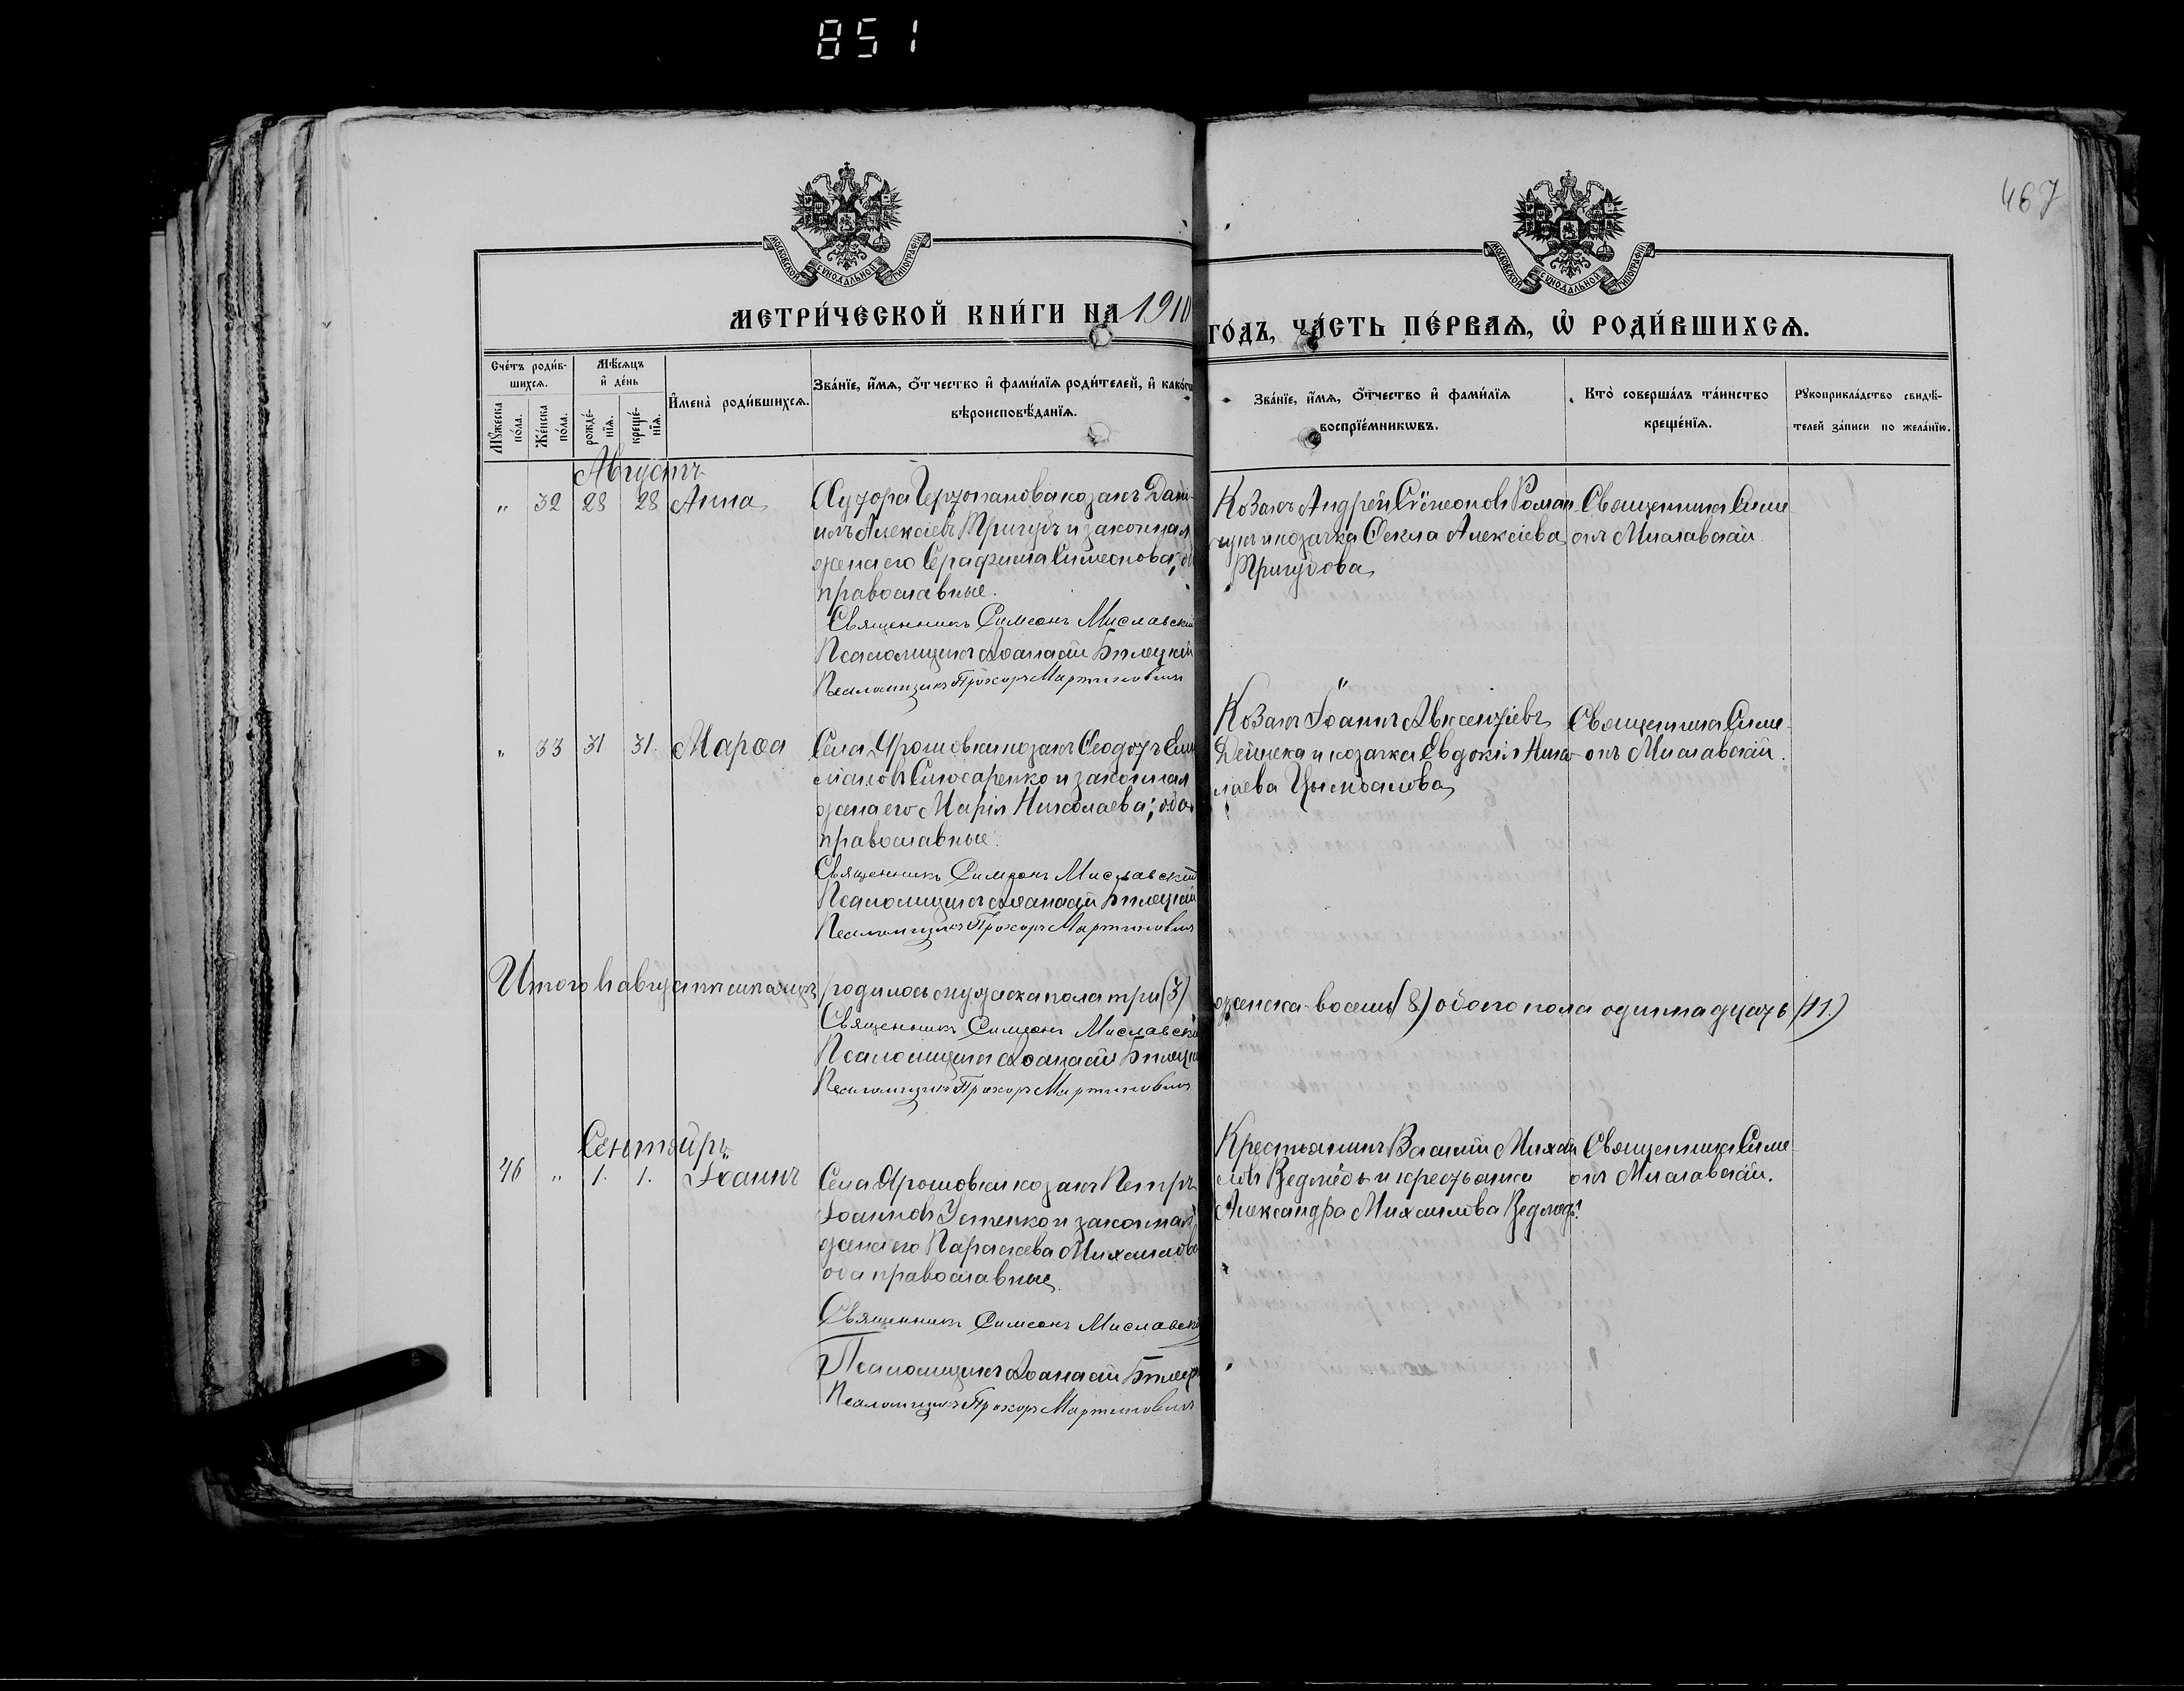 851
467
МОСКОВСКОЙ СУНОДАЛЬНОЙ ТИПОГРАФІИ
МОСКОВСКОЙ СУНОДАЛЬНОЙ ТИПОГРАФІИ
МЕТРИ́ЧЕСКОЙ КНИ́ГИ НА 1910
ГО́ДЪ, ЧА́СТЬ ПЕ́РВАѦ, Ѡ҆ РОДИ́ВШИХСѦ.
Сче́тъ роди́в-
шихсѧ.
Мꙋ́жеска по́ла.
Же́нска по́ла.
Мѣ́сѧцъ
и҆ де́нь
рожде́-
нїѧ.
креще́-
нїѧ.
И҆мена̀ роди́вшихсѧ.
Зва́нїе, и҆́мѧ, ѻ҆́тчество и҆ фами́лїѧ роди́телей, и҆ како́гѡ
вѣроисповѣ́данїѧ.
Зва́нїе, и҆́мѧ, ѻ҆́тчество и҆ фами́лїѧ
воспрїе́мникѡвъ.
Кто̀ соверша́лъ та́инство
креще́нїѧ.
Рꙋкоприкла́дство свидѣ́-
телей за́писи по жела́нїю.
Августъ
" 32 28 28 Анна
Хутора козакъ Дани-
илъ Алексіевъ Тригубъ и законная
жена его Серафима Симеонова, об
православные.
Священникъ Симеонъ Миславскій
Псаломщикъ Аѳанасій Билецкій
Псаломщикъ Прохоръ Мартиновичъ
Козакъ Андрей Сѵмеоновъ Роман
и козачка Ѳекла Алексіева
Тригубова
Священникъ Симе
онъ Миславскій
" 33 31. 31. Марѳа
Села Ярошовки козакъ Ѳеодоръ
Слюсаренко и законная
жена его Марія Николаева; оба
православные.
Священникъ Симеонъ Миславскій
Псаломщикъ Аѳанасій Билецкій
Псаломщикъ Прохоръ Мартиновичъ
Козакъ Іоаннъ Авксентіевъ
Дейнека и козачка Евдокія Нико-
лаева Цымбалова
Священникъ Симе-
онъ Миславскій.
Итого въ августѣ мѣсяцѣ родилось мужска пола три (3)
женска - восемь (8) обоего пола одиннадцать (11.)
Священникъ Симеонъ Миславскій
Псаломщикъ Аѳанасій Билецкі
Псаломщикъ Прохоръ Мартиновичъ
Сентябрь
46 " 1. 1. Іоаннъ
Села Ярошовки козакъ Петръ
Іоанновъ Устенко и законная
жена его Параскева Михаилова
оба православные
Священникъ Симеонъ Миславскі
Псаломщикъ Аѳанасій Билецк
Псаломщикъ Прохоръ Мартиновичъ
Крестьянинъ Василій Михаи
ловъ Ведмѣдь и крестьянка
Александра Михаилова Ведмедь
Священникъ Симе
онъ Миславскій.